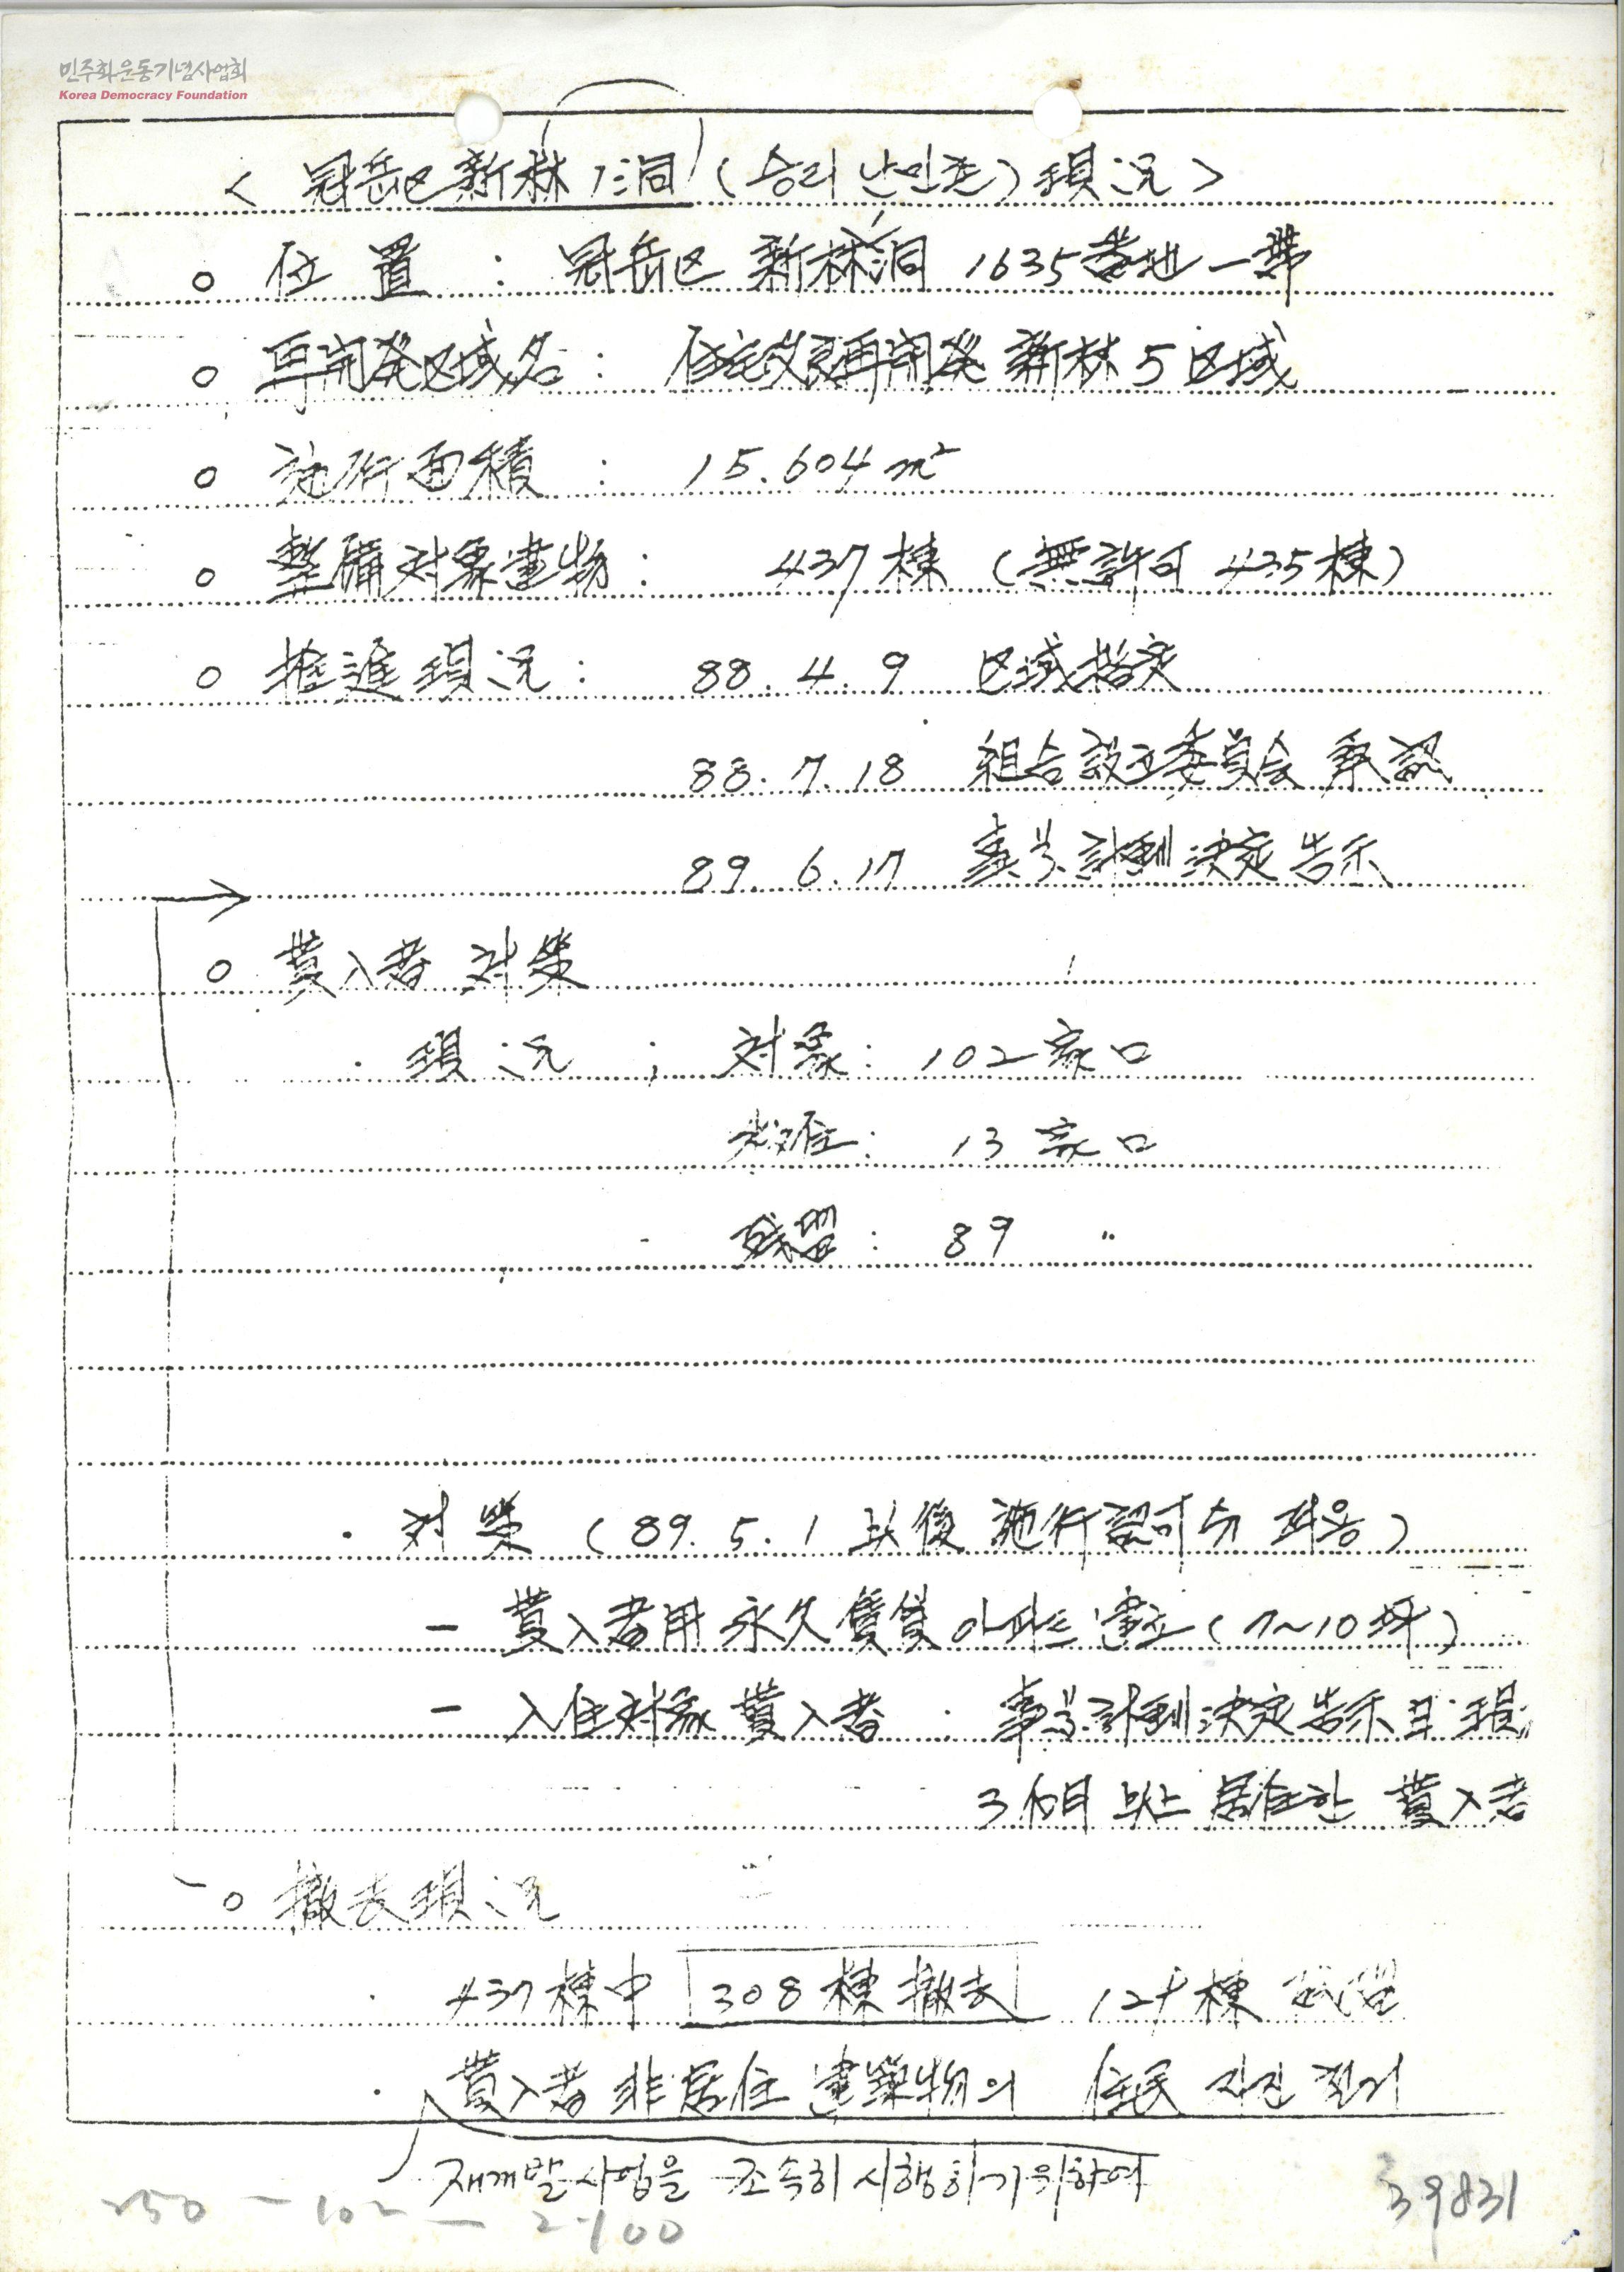 민주화운동기념사업회
Korea Democracy Foundation
< 冠岳区 新林 7洞 (승리 난민촌) 現況 >
○ 位置 : 冠岳区 新林洞 1635番地 一帶
○ 再開発区域名 : 住宅改良再開発 新林 5 区域
○ 施行面積 : 15.604 m²
○ 整備対象建物 : 437棟 (無許可 435棟)
○ 推進現況 : 88. 4. 9 区域指定
88. 7. 18 組合設立委員会 承認
89. 6. 17 事業計劃決定告示
○ 貰入者 対策
· 現況 ; 対象 : 102 家口
移住 : 13 家口
残留 : 89 〃
· 対策 (89. 5. 1 以後 施行認可分 적용)
- 貰入者用 永久賃貸 아파트 建立 (7~10坪)
- 入住対象 貰入者 : 事業計劃決定告示日 現
3個月 以上 居住한 貰入者
○ 撤去現況
· 437棟中 308棟 撤去 棟 残留
· 貰入者 非居住 建築物의 住民 자진 철거
재개발사업을 조속히 시행하기위하여
250 - 102 - 2-100
39831